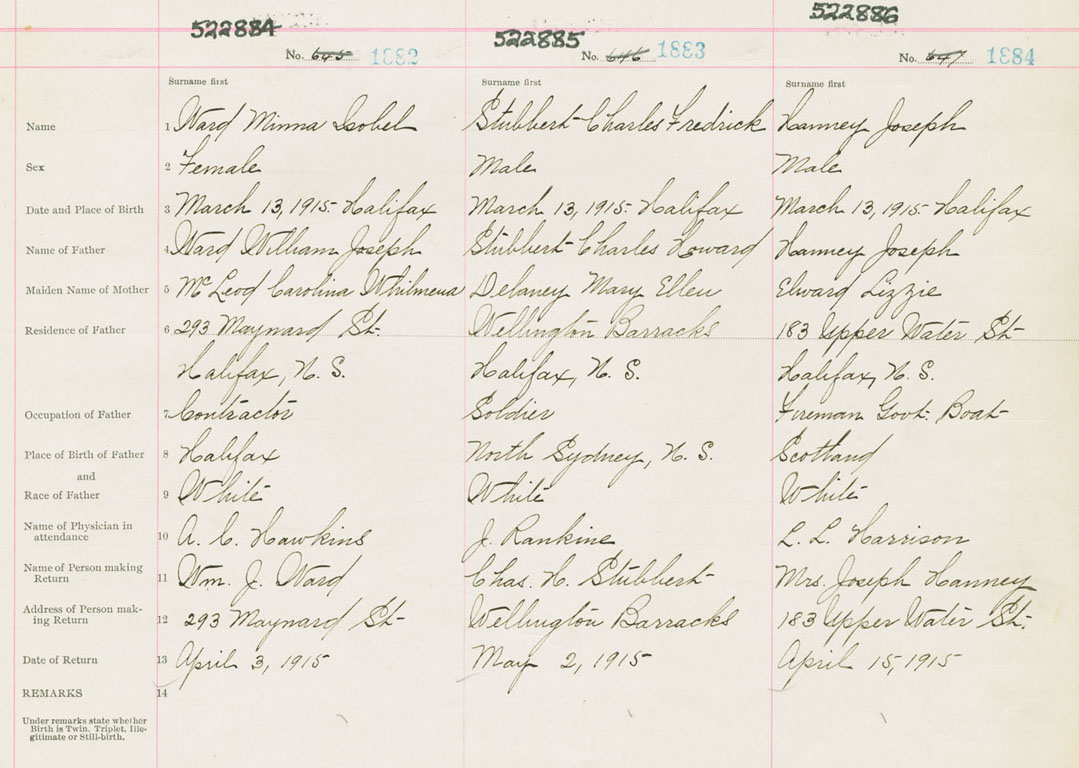 522884 522885 522886
No. 645 1882 No. 646 1883 No. 647 1884
Surname first Surname first Surname first
Name 1 Ward Minna Isobel Stubbert Charles Fredrick Hanney Joseph
Sex 2 Female Male Male
Date and Place of Birth 3 March 13, 1915 Halifax March 13, 1915 Halifax March 13, 1915 Halifax
Name of Father 4 Ward William Joseph Stubbert Charles Howard Hanney Joseph
Maiden Name of Mother 5 McLeod Carolina Whilmena Delaney Mary Ellen Elward Lizzie
Residence of Father 6 293 Maynard St. Wellington Barracks 183 Upper Water St
Halifax, N. S. Halifax, N. S. Halifax, N. S.
Occupation of Father 7 Contractor Soldier Fireman Govt. Boat
Place of Birth of Father 8 Halifax North Sydney, N. S. Scotland
and
Race of Father 9 White White White
Name of Physician in
attendance 10 A. C. Hawkins J. Rankine L. L. Harrison
Name of Person making
Return 11 Wm. J. Ward Chas. H. Stubbert Mrs. Joseph Hanney
Address of Person mak-
ing Return 12 293 Maynard St Wellington Barracks 183 Upper Water St.
Date of Return 13 April 3, 1915 May 2, 1915 April 15, 1915
REMARKS 14
Under remarks state whether
Birth is Twin, Triplet, Ille-
gitimate or Still-birth.